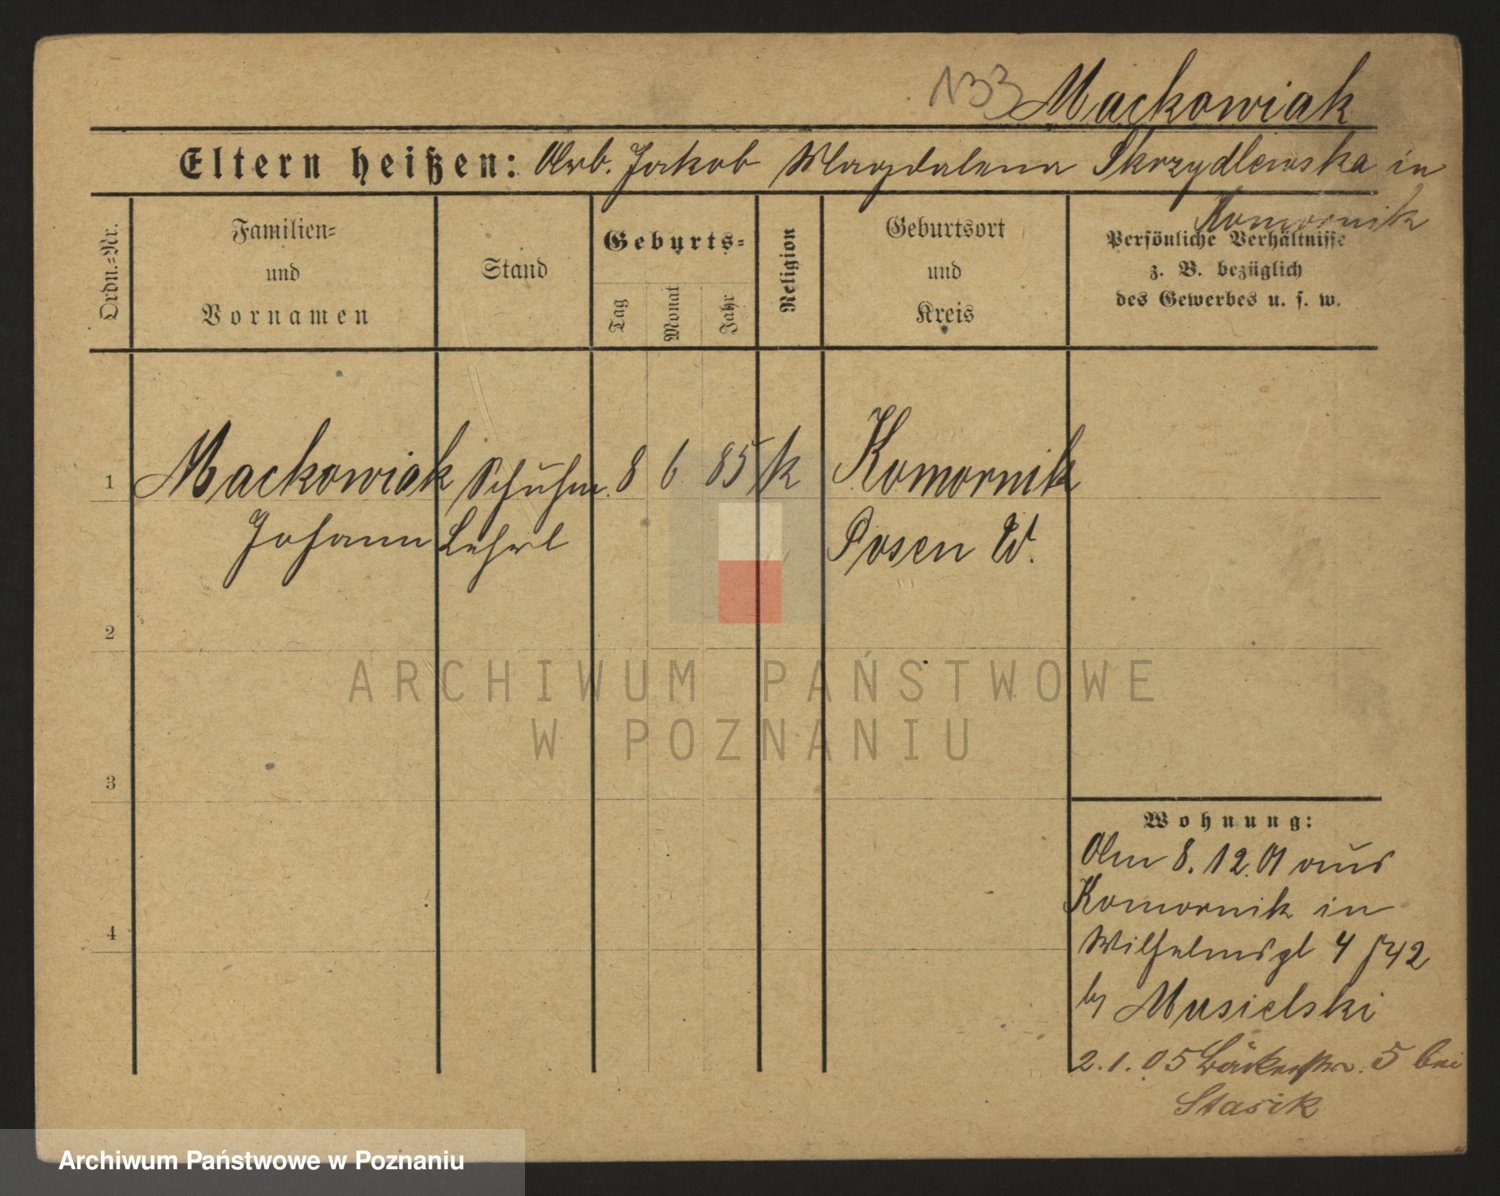 133 Mackowiak
Eltern heißen: Arb. Jakob Magdalena Skrzydlewska in
Komornik
Ordn.-Nr.
Familien-
und
Vornamen
Stand
Geburts-
Tag
Monat
Jahr
Religion
Geburtsort
und
Kreis
Persönliche Verhältnisse
z. B. bezüglich
des Gewerbes u. s. w.
1 Mackowiak Schuhm. 8 6 85 k Komornik
Johann Lehrl Posen W.
2
3
4
Wohnung:
Am 8.12.01 aus
Komornik in
Wilhelmspl 4 J42
by Musielski
2.1.05 Bäckerstr. 5 bei
Stasik
ARCHIWUM PAŃSTWOWE
W POZNANIU
Archiwum Państwowe w Poznaniu